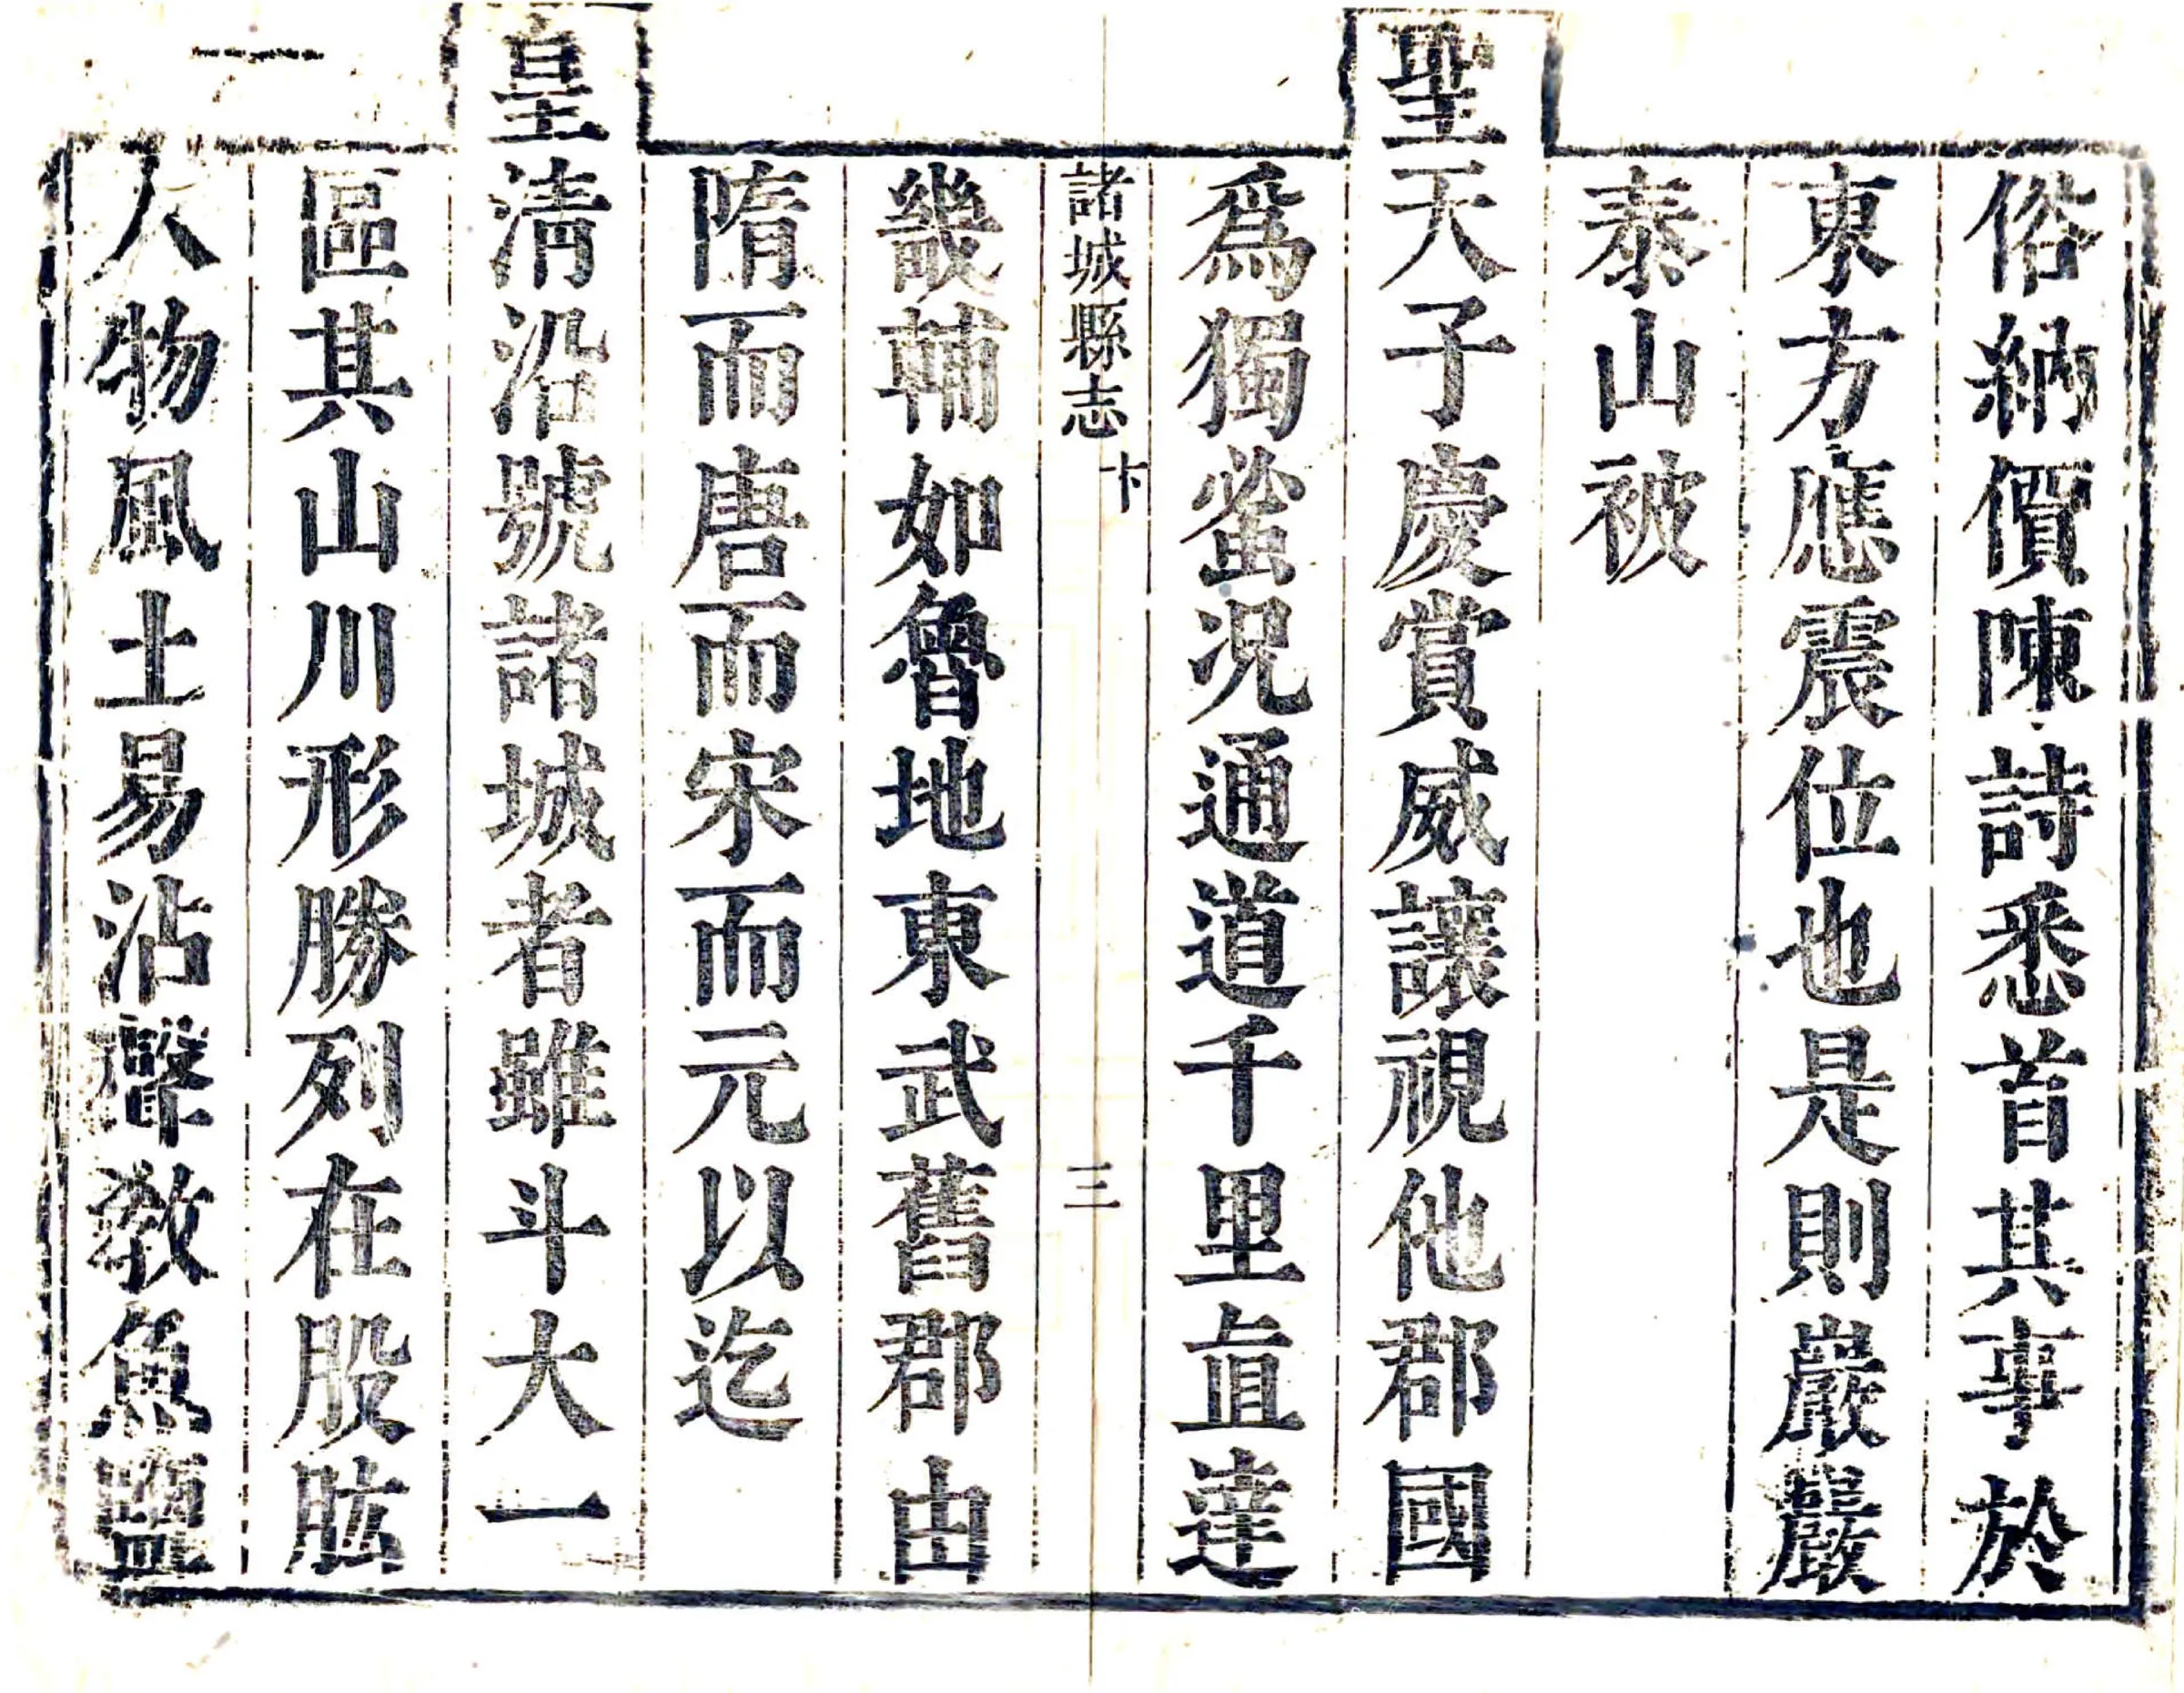 俗納價陳詩悉首其事於
東方應震位也是則巖巖
泰山被
聖天子慶賞威讓視他郡國
爲獨蚤况通道千里直達
諸城縣志 卞 三
畿輔如魯地東武舊郡由
隋而唐而宋而元以迄
皇清沿號諸城者雖斗大一
區其山川形勝列在股肱
人物風土易沾聲教魚鹽